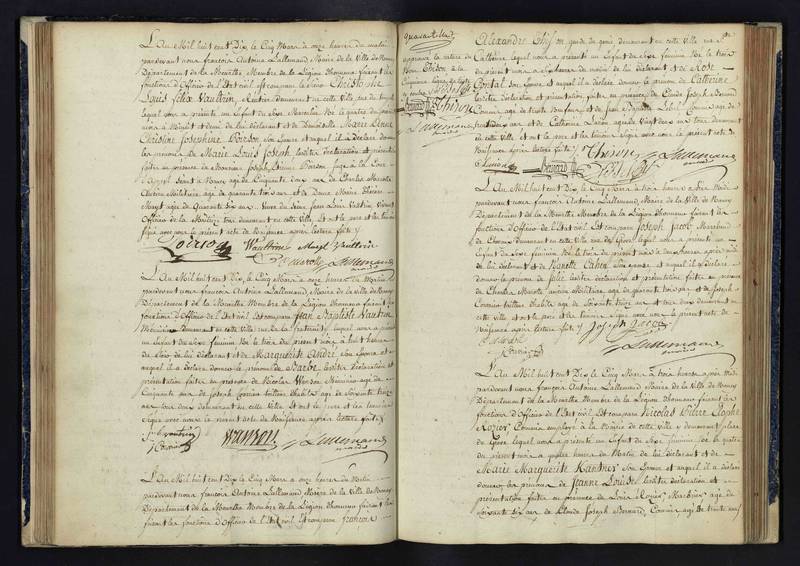 L'An Mil huit cent Dix le Cinq Mars à onze heures du matin
pardevant nous françois Antoine Lallemand Maire de la Ville de Nancy
Département de la Meurthe Membre de la Légion d'honneur faisant les
fonctions d'Officier de l'Etat civil est comparu le Sieur Christophe
Louis félix Vaultrin, Rentier demeurant en cette Ville rue
lequel nous a présenté un Enfant du Sexe Masculin Né le quatre du présent
mois à Minuit et demi de lui déclarant et de Marie Anne
Christine Josephine Poirson son Epouse et auquel il a déclaré donner
les prénoms de Marie Louis Joseph lesdites déclaration et présentation
faites en présence de Monsieur Joseph Poirson Juge à la Cour
d'Appel âgé de Cinquante ans de Charles Marcolle
âgé de quarante trois ans et de Dame Marie Thérèse
Margt âgée de Quarante Six ans Veuve du Sieur Jean Louis Vaultrin, Vivant
Officier de la Maîtrise tous demeurant en cette Ville, Et ont le père et les témoins
signé avec nous le présent acte de Naissance après lecture faite
Poirson Vaultrin Margt Vaultrin
Marcolle Lallemand
L'An Mil huit cent Dix le Cinq Mars à onze heures du Matin
pardevant nous françois Antoine Lallemand, Maire de la Ville de Nancy
Département de la Meurthe Membre de la Légion d'honneur faisant les
fonctions d'Officier de l'Etat civil est comparu Jean Baptiste Vautrin
Menuisier demeurant en cette Ville rue de la fraternité lequel nous a présenté
un Enfant du Sexe féminin Né le trois du présent mois à huit heures
du Soir de lui déclarant et de Marguerite André son Epouse et
auquel il a déclaré donner le prénom de Barbe lesdites déclaration et
présentation faites en présence de Nicolas Wanson Menuisier âgé de
Cinquante ans de Joseph Cornier tailleur d'habits âgé de Soixante treize
ans tous deux demeurant en cette Ville Et ont le père et les témoins
signé avec nous le présent acte de Naissance après lecture faite
j b vautrin wanson Lallemand
J Cornier maire
L'An Mil huit cent Dix le Cinq Mars à onze heures du Matin
pardevant nous françois Antoine Lallemand Maire de la Ville de Nancy
Département de la Meurthe Membre de la Légion d'honneur faisant
les fonctions d'Officier de l'Etat civil est comparu françois
approuvé la rature du
mot Thiron
Thiron
Lallemand
Alexandre garde du génie demeurant en cette Ville rue Ste
Catherine lequel nous a présenté un Enfant du Sexe féminin Né le trois
du présent mois à heures du matin de lui déclarant et de Rose
Gontal son Epouse et auquel il a déclaré donner le prénom de Catherine
lesdites déclaration et présentation faites en présence de Claude Joseph Bernard
Commis âgé de trente neuf ans
et de Catherine âgée de Vingt deux ans tous demeurant
en cette Ville et ont le père et les témoins signé avec nous le présent acte de
Naissance après lecture faite
Thiron Lallemand
Bernard maire
L'An Mil huit cent Dix le Cinq Mars à trois heures après Midi
pardevant nous françois Antoine Lallemand, Maire de la Ville de Nancy
Département de la Meurthe Membre de la Légion d'honneur faisant les
fonctions d'Officier de l'Etat civil est comparu Joseph Jacob Marchand
de Chevaux demeurant en cette Ville lequel nous a présenté un
Enfant du Sexe féminin Né le trois du présent mois à deux heures après midi
de lui déclarant et de Nanette Cahen Son Epouse et auquel il a déclaré
donner le prénom de Julie lesdites déclaration et présentation faites en présence
de Charles Marcolle âgé de quarante trois ans et de Joseph
Cornier tailleur d'habits âgé de Soixante treize ans tous deux demeurant en
cette Ville et ont le père et les témoins signé avec nous le présent acte de
Naissance après lecture faite Joseph Jacob
Marcolle Lallemand
J Cornier maire
L'An Mil huit cent Dix le Cinq Mars à trois heures après Midi
pardevant nous françois Antoine Lallemand Maire de la Ville de Nancy
Département de la Meurthe Membre de la Légion d'honneur faisant les
fonctions d'Officier de l'Etat civil est comparu Nicolas Pierre
Rozier Commis employé à la Mairie de cette Ville y demeurant place
lequel nous a présenté un Enfant du Sexe féminin Né le quatre
du présent mois à quatre heures du Matin de lui déclarant et de
Marie Marguerite Kantner Son Epouse et auquel il a déclaré
donner les prénoms de Jeanne Louise lesdites déclaration et
présentation faites en présence de Louis Rozier âgé de
Soixante six ans de Claude Joseph Bernard, Commis âgé de trente neuf